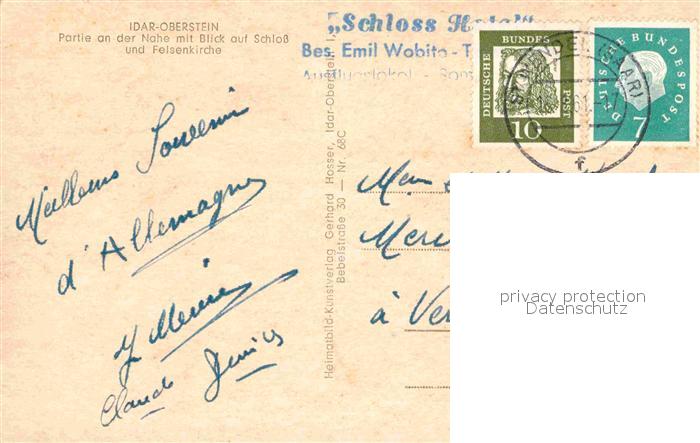 IDAR-OBERSTEIN
Partie an der Nahe mit Blick auf Schloß
und Felsenkirche
„Schloss Hotel"
Bes. Emil Wobito - T
Ausflugslokal -
DEUTSCHE BUNDESPOST
10
DEUTSCHE BUNDESPOST
7
ST. WENDEL (SAAR)
61-17
f
Meilleurs Souvenir
d'Allemagne
Claude
Heimatbild-Kunstverlag Gerhard Hosser, Idar-Oberstein
Bebelstraße 30 — Nr. 68C
à Ver
privacy protection
Datenschutz